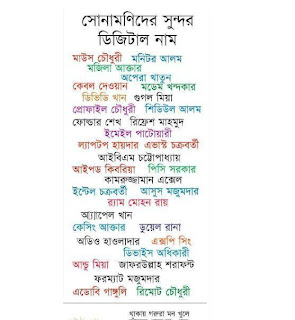 সোনামণিদের সুন্দর
ডিজিটাল নাম
মাউস চৌধুরী মনিটর আলম
মজিলা আক্তার
অপেরা খাতুন
কেবল দেওয়ান মডেম খন্দকার
ডিভিডি খান গুগল মিয়া
প্রোফাইল চৌধুরী শিডিউল আলম
ফোল্ডার শেখ রিফ্রেশ মাহমুদ
ইমেইল পাটোয়ারী
ল্যাপটপ হায়দার এভাস্ট চক্রবর্তী
আইবিএম চট্টোপাধ্যায়
আইপড কিবরিয়া পিসি সরকার
কামরুজ্জামান এক্সেল
ইন্টেল চক্রবর্তী আসুস মজুমদার
র‍্যাম মোহন রায়
অ্যাপেল খান
কেসিং আক্তার ডুয়েল রানা
অডিও হাওলাদার এক্সপি সিং
ডিভাইস অধিকারী
আন্ডু মিয়া জাফরউল্লাহ শরাফন্ট
ফরম্যাট মজুমদার
এডোবি গাঙ্গুলি রিমোট চৌধুরী
থাকায় গরুরা মন খুলে